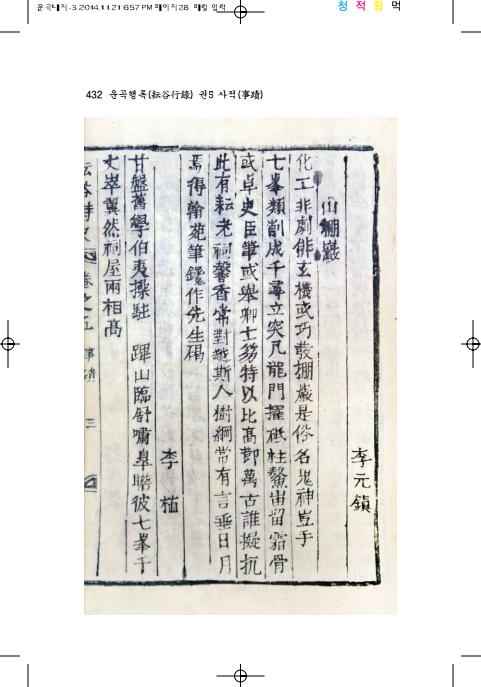 운곡대지-3 2014.11.21 6:57 PM 페이지28 매킬 입력
청 적 황 먹
432 운곡행록(耘谷行錄) 권5 사적(事蹟)
李元鎭
山棚巖
化工非劇俳玄機或巧戱棚巖是俗名鬼神豈手
七峯類削成千尋立突兀龍門擢砥柱鰲宙留霜骨
或卓史臣筆或擧卿士笏特以比高節萬古誰擬抗
此有耘老祠馨香常對越斯人樹綱常有言垂日月
焉得翰苑筆鑱作先生碣
李植
甘盤舊學伯夷操駐蹕山臨舒嘯皐瞻彼七峯千
丈崒翼然祠屋兩相高
耘谷詩史 卷之五 事蹟 三